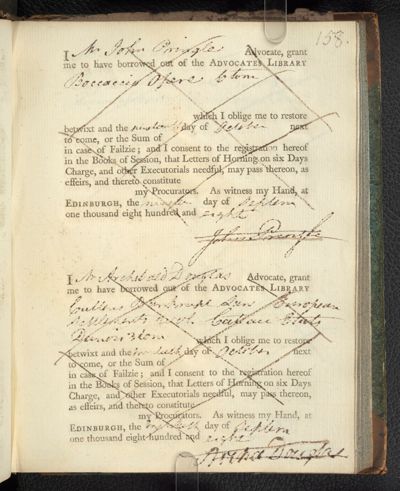 158.
I Mr John Pringle Advocate, grant
me to have borrowed out of the ADVOCATES LIBRARY
Boccaccio Opere
which I oblige me to restore
betwixt and the day of October next
to come, or the Sum of
in case of Failzie; and I consent to the registration hereof
in the Books of Session, that Letters of Horning on six Days
Charge, and other Executorials needful, may pass thereon, as
effeirs, and thereto constitute
my Procurators. As witness my Hand, at
EDINBURGH, the day of Septem
one thousand eight hundred and eight
John Pringle
I Mr Archibald Douglas Advocate, grant
me to have borrowed out of the ADVOCATES LIBRARY
Cullens Bankrupt Laws European
Settlements
which I oblige me to restore
betwixt and the day of October next
to come, or the Sum of
in case of Failzie; and I consent to the registration hereof
in the Books of Session, that Letters of Horning on six Days
Charge, and other Executorials needful, may pass thereon,
as effeirs, and thereto constitute
my Procurators. As witness my Hand, at
EDINBURGH, the day of Septem
one thousand eight hundred and eight
Archd Douglas